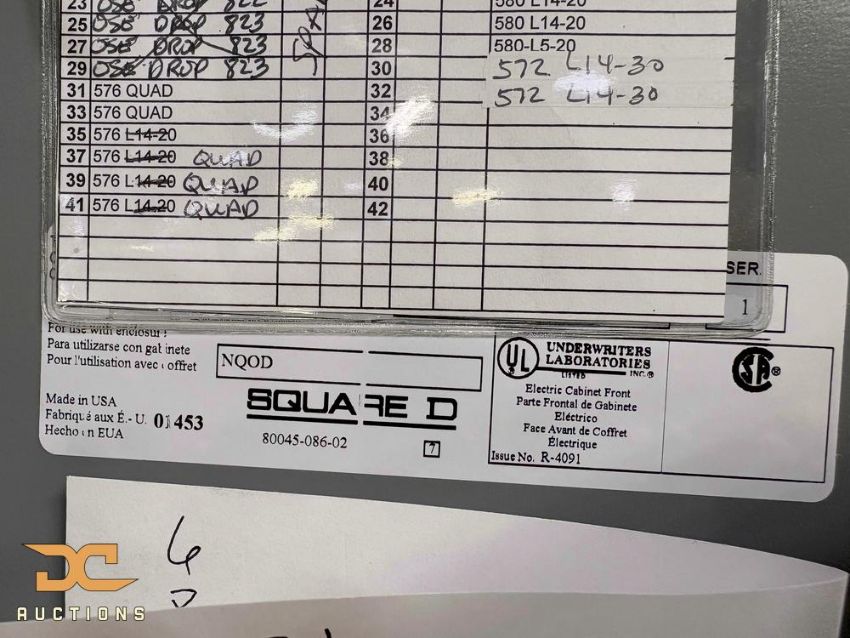 23 OSB DROP 822 24 580 L14-20
25 OSB DROP 823 26 580 L14-20
27 OSB DROP 823 28 580-L5-20
29 OSB DROP 823 30 572 L14-30
31 576 QUAD 32 572 L14-30
33 576 QUAD 34
35 576 L14-20 36
37 576 L14-20 QUAD 38
39 576 L14-20 QUAD 40
41 576 L14-20 QUAD 42
SER.
1
For use with enclosur
Para utilizarse con gabinete
Pour l'utilisation avec coffret
NQOD
Made in USA
Fabriqué aux É.- U. 01453
Hecho en EUA
SQUARE D
80045-086-02
7
UL UNDERWRITERS
LABORATORIES
LISTED INC.®
Electric Cabinet Front
Parte Frontal de Gabinete
Eléctrico
Face Avant de Coffret
Électrique
Issue No. R-4091
SA®
6
DC
AUCTIONS